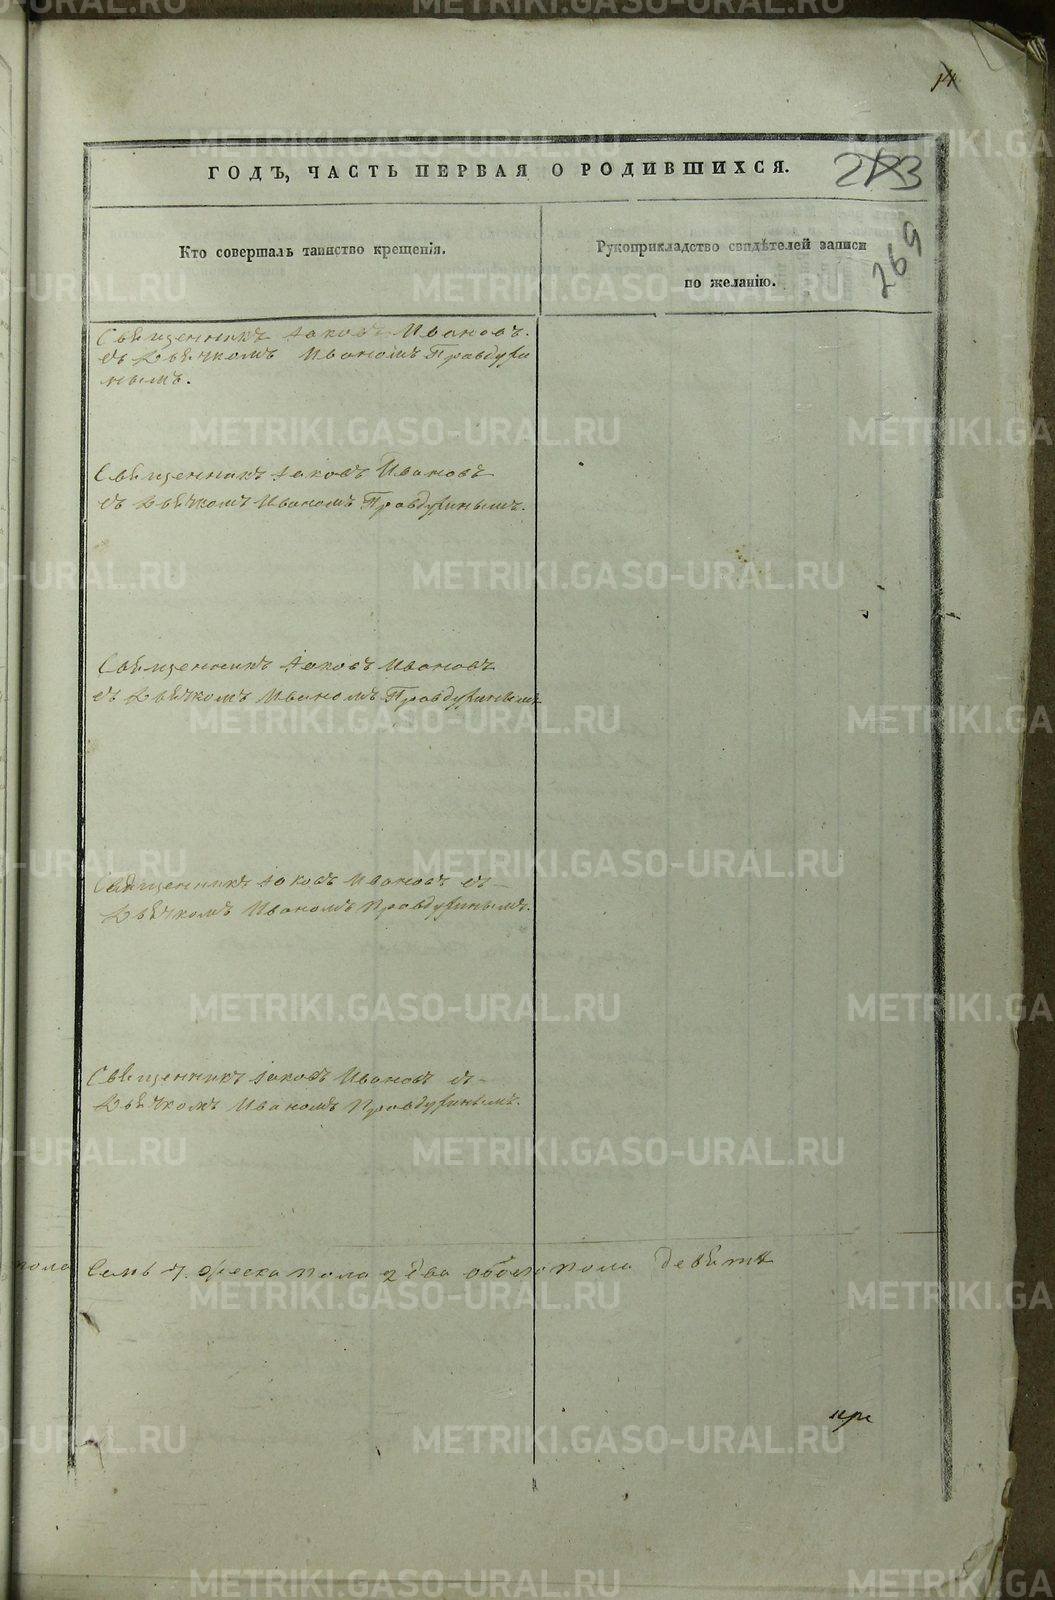 14
ГОДЪ, ЧАСТЬ ПЕРВАЯ О РОДИВШИХСЯ.
283
269
Кто совершалъ таинство крещенія.
Рукоприкладство свидѣтелей записи
по желанію.
Священникъ Іаковъ Ивановъ.
съ Дьячкомъ Иваномъ Правдухи
нымъ.
Священникъ Іаковъ Ивановъ
съ Дьячкомъ Иваномъ Правдухинымъ.
Священникъ Іаковъ Ивановъ
съ Дьячкомъ Иваномъ Правдухинымъ
Священникъ Іаковъ Ивановъ съ
Дьячкомъ Иваномъ Правдухинымъ.
Священникъ Іаковъ Ивановъ съ
Дьячкомъ Иваномъ Правдухинымъ.
пола Семь 7. женска пола 2 два обоего пола девять
METRIKI.GASO-URAL.RU